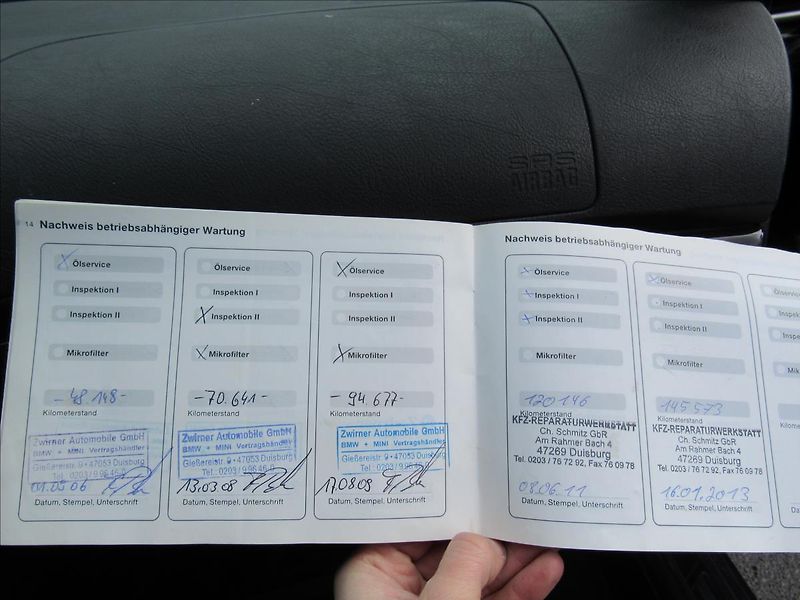 SRS
AIRBAG
14 Nachweis betriebsabhängiger Wartung
Ölservice
Inspektion I
Inspektion II
Mikrofilter
-48 148-
Kilometerstand
Zwirner Automobile GmbH
BMW + MINI Vertragshändler
Gießereistr. 9 • 47053 Duisburg
Tel.: 0203/9 96 46-0
01.03 06
Datum, Stempel, Unterschrift
Ölservice
Inspektion I
X Inspektion II
X Mikrofilter
-70.641-
Kilometerstand
Zwirner Automobile GmbH
BMW + MINI Vertragshändler
Gießereistr. 9 • 47053 Duisburg
Tel.: 0203/9 96 46-0
13.03 08
Datum, Stempel, Unterschrift
X Ölservice
Inspektion I
Inspektion II
X Mikrofilter
-94.677-
Kilometerstand
Zwirner Automobile GmbH
BMW + MINI Vertragshändler
Gießereistr. 9 • 47053 Duisburg
Tel.: 0203/9 96 46-0
17.08 09
Datum, Stempel, Unterschrift
Nachweis betriebsabhängiger Wartung
X Ölservice
X Inspektion I
X Inspektion II
Mikrofilter
120146
Kilometerstand
KFZ-REPARATURWERKSTATT
Ch. Schmitz GbR
Am Rahmer Bach 4
47269 Duisburg
Tel. 0203 / 76 72 92, Fax 76 09 78
08.06.11
Datum, Stempel, Unterschrift
X Ölservice
Inspektion I
Inspektion II
Mikrofilter
145573
Kilometerstand
KFZ-REPARATURWERKSTATT
Ch. Schmitz GbR
Am Rahmer Bach 4
47269 Duisburg
Tel. 0203 / 76 72 92, Fax 76 09 78
16.01.2013
Datum, Stempel, Unterschrift